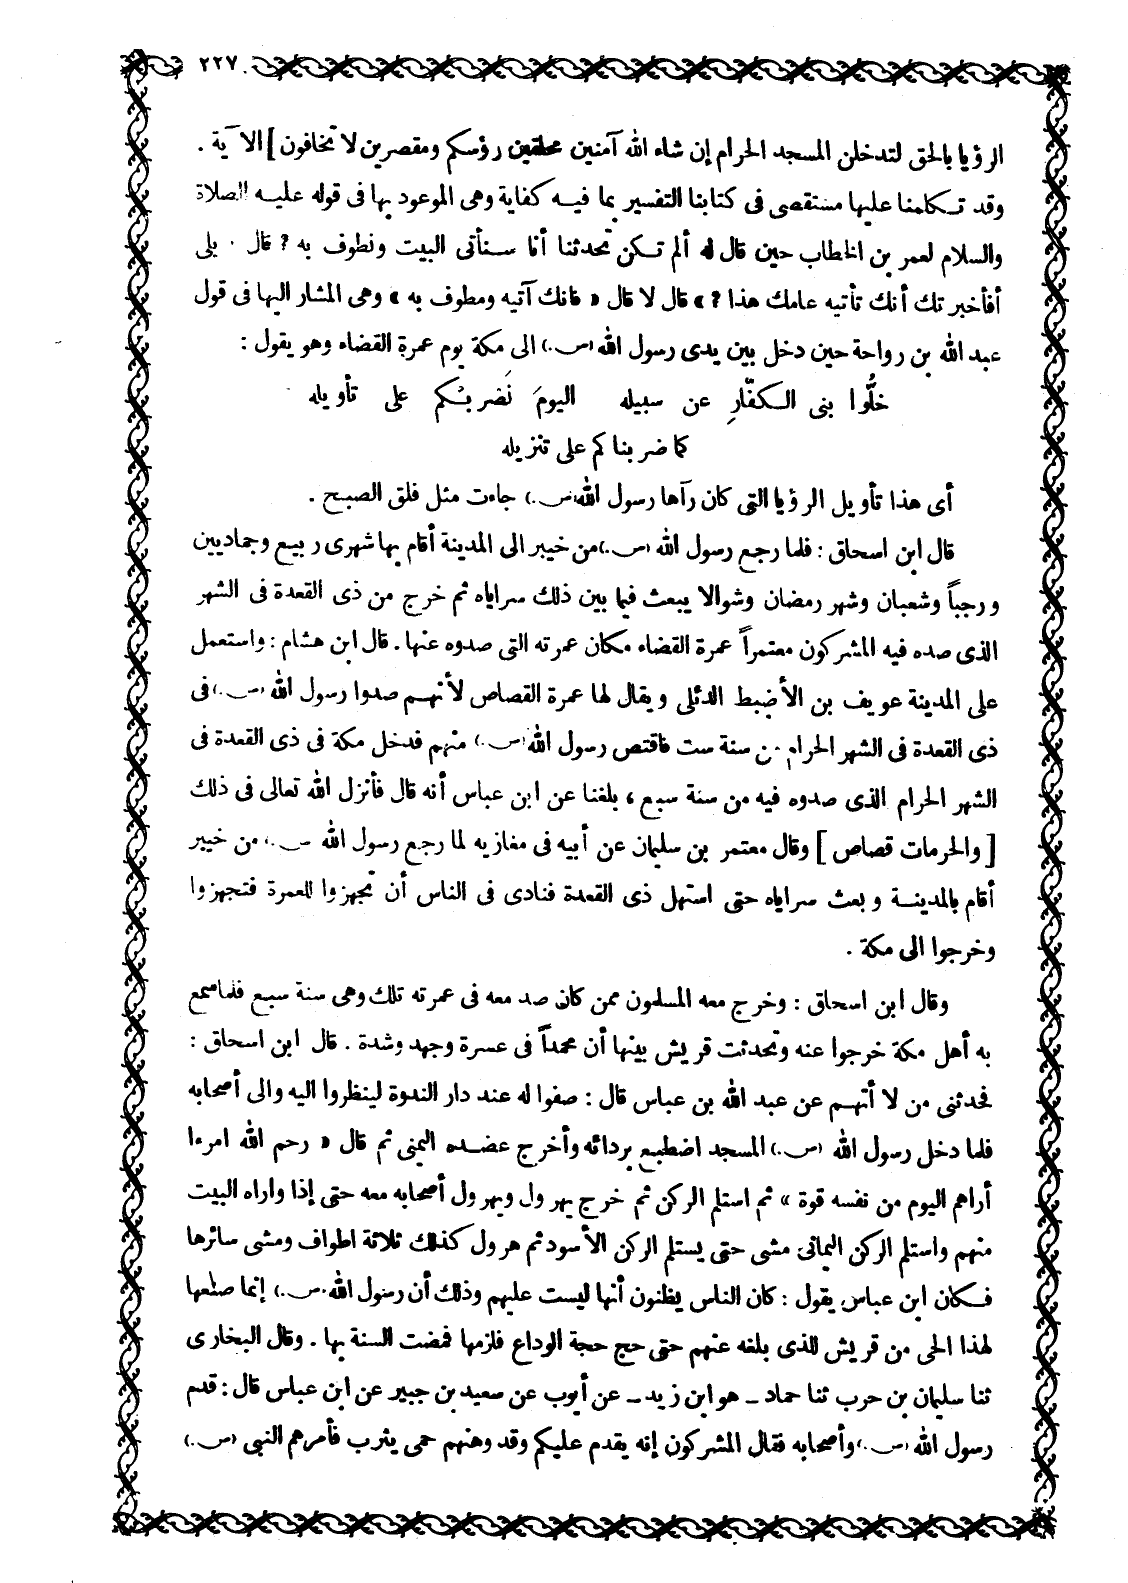 ٢٢٧
الرؤيا بالحق لتدخلن المسجد الحرام إن شاء الله آمنين محلقين رؤسكم ومقصرين لا تخافون] الآية .
وقد تكلمنا عليها مستقصى فى كتابنا التفسير بما فيه كفاية وهى الموعود بها فى قوله عليه الصلاة
والسلام لعمر بن الخطاب حين قال له ألم تكن تحدثنا أنا سنأتى البيت ونطوف به ? قال . بلى
أفأخبرتك أنك تأتيه عامك هذا ? » قال لا قال « فانك آتيه ومطوف به » وهى المشار اليها فى قول
عبد الله بن رواحة حين دخل بين يدى رسول الله (س.) الى مكة يوم عمرة القضاء وهو يقول :
خلُّوا بنى الكفّارِ عن سبيله اليومَ نَضربْكم على تأويله
كما ضربناكم على تنزيله
أى هذا تأويل الرؤيا التى كان رآها رسول الله (س.) جاءت مثل فلق الصبح .
قال ابن اسحاق : فلما رجع رسول الله (س.) من خيبر الى المدينة أقام بها شهرى ربيع وجماديين
ورجباً وشعبان وشهر رمضان وشوالا يبعث فيما بين ذلك سراياه ثم خرج من ذى القعدة فى الشهر
الذى صده فيه المشركون معتمراً عمرة القضاء مكان عمرته التى صدوه عنها . قال ابن هشام : واستعمل
على المدينة عويف بن الأضبط الدئلى ويقال لها عمرة القصاص لأنهم صدوا رسول الله (س.) فى
ذى القعدة فى الشهر الحرام من سنة ست فاقتص رسول الله (س.) منهم فدخل مكة فى ذى القعدة فى
الشهر الحرام الذى صدوه فيه من سنة سبع ، بلغنا عن ابن عباس أنه قال فأنزل الله تعالى فى ذلك
[ والحرمات قصاص ] وقال معتمر بن سليمان عن أبيه فى مغازيه لما رجع رسول الله (س.) من خيبر
أقام بالمدينة وبعث سراياه حتى استهل ذى القعدة فنادى فى الناس أن تجهزوا للعمرة فتجهزوا
وخرجوا الى مكة .
وقال ابن اسحاق : وخرج معه المسلمون ممن كان صد معه فى عمرته تلك وهى سنة سبع فلما سمع
به أهل مكة خرجوا عنه وتحدثت قريش بينها أن محمداً فى عسرة وجهد وشدة . قال ابن اسحاق :
فحدثنى من لا أتهم عن عبد الله بن عباس قال : صفوا له عند دار الندوة لينظروا اليه والى أصحابه
فلما دخل رسول الله (س.) المسجد اضطبع بردائه وأخرج عضده اليمنى ثم قال « رحم الله امرءا
أراهم اليوم من نفسه قوة » ثم استلم الركن ثم خرج يهرول ويهرول أصحابه معه حتى إذا واراه البيت
منهم واستلم الركن اليمانى مشى حتى يستلم الركن الأسود ثم هرول كذلك ثلاثة اطواف ومشى سائرها
فكان ابن عباس يقول : كان الناس يظنون أنها ليست عليهم وذلك أن رسول الله (س.) إنما صنعها
لهذا الحى من قريش للذى بلغه عنهم حتى حج حجة الوداع فلزمها فمضت السنة بها . وقال البخارى
ثنا سليمان بن حرب ثنا حماد ـ هو ابن زيد ـ عن أيوب عن سعيد بن جبير عن ابن عباس قال : قدم
رسول الله (س.) وأصحابه فقال المشركون إنه يقدم عليكم وقد وهنهم حمى يثرب فأمرهم النبى (س.)